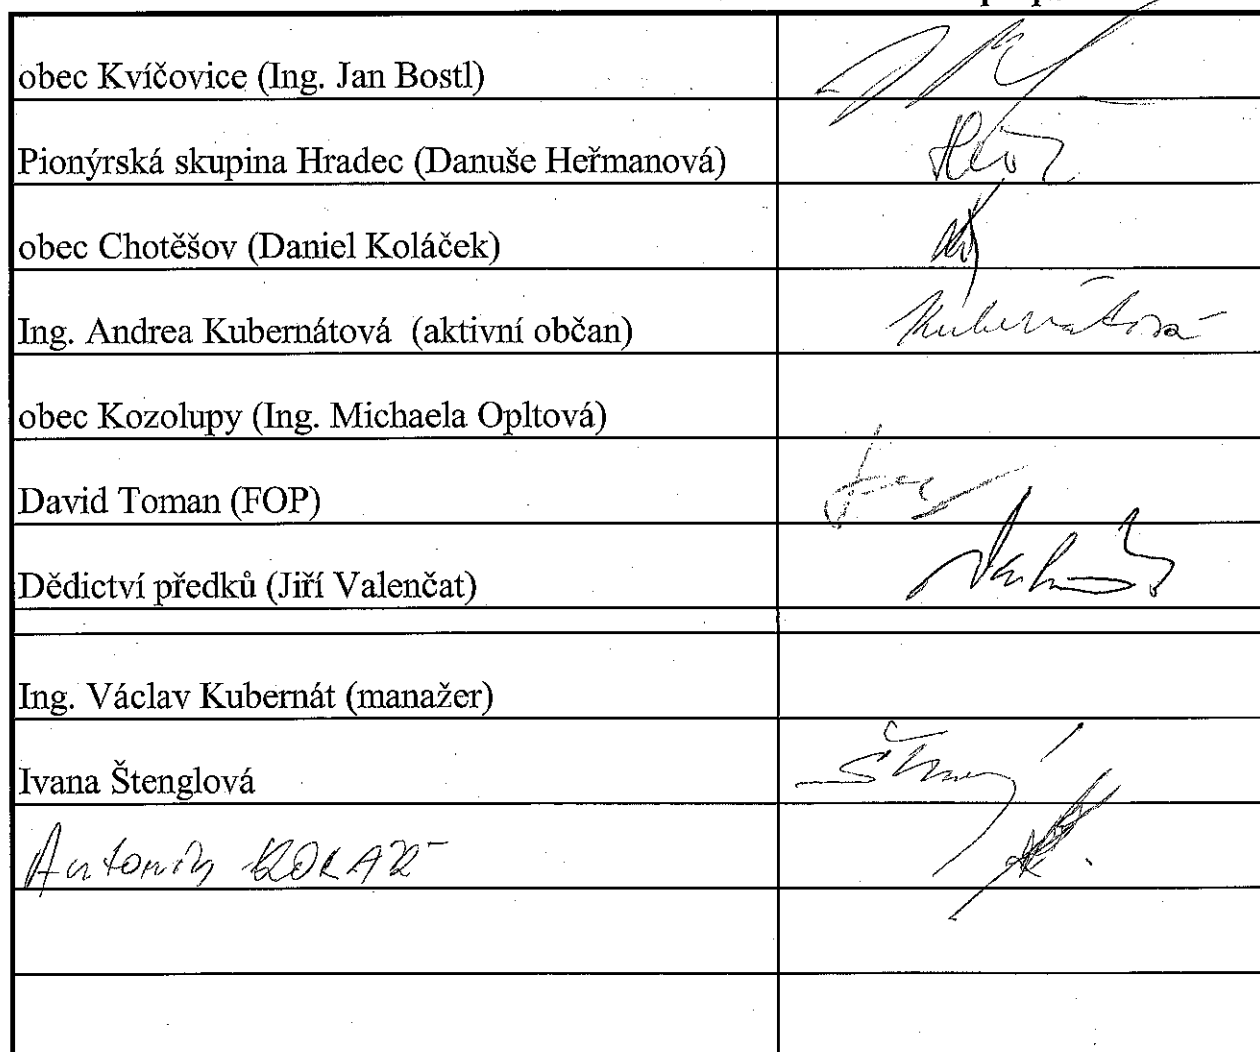 obec Kvíčovice (Ing. Jan Bostl)
Pionýrská skupina Hradec (Danuše Heřmanová)
obec Chotěšov (Daniel Koláček)
Ing. Andrea Kubernátová (aktivní občan)
Kubernátová
obec Kozolupy (Ing. Michaela Opltová)
David Toman (FOP)
Dědictví předků (Jiří Valenčat)
Ing. Václav Kubernát (manažer)
Ivana Štenglová
Antonín